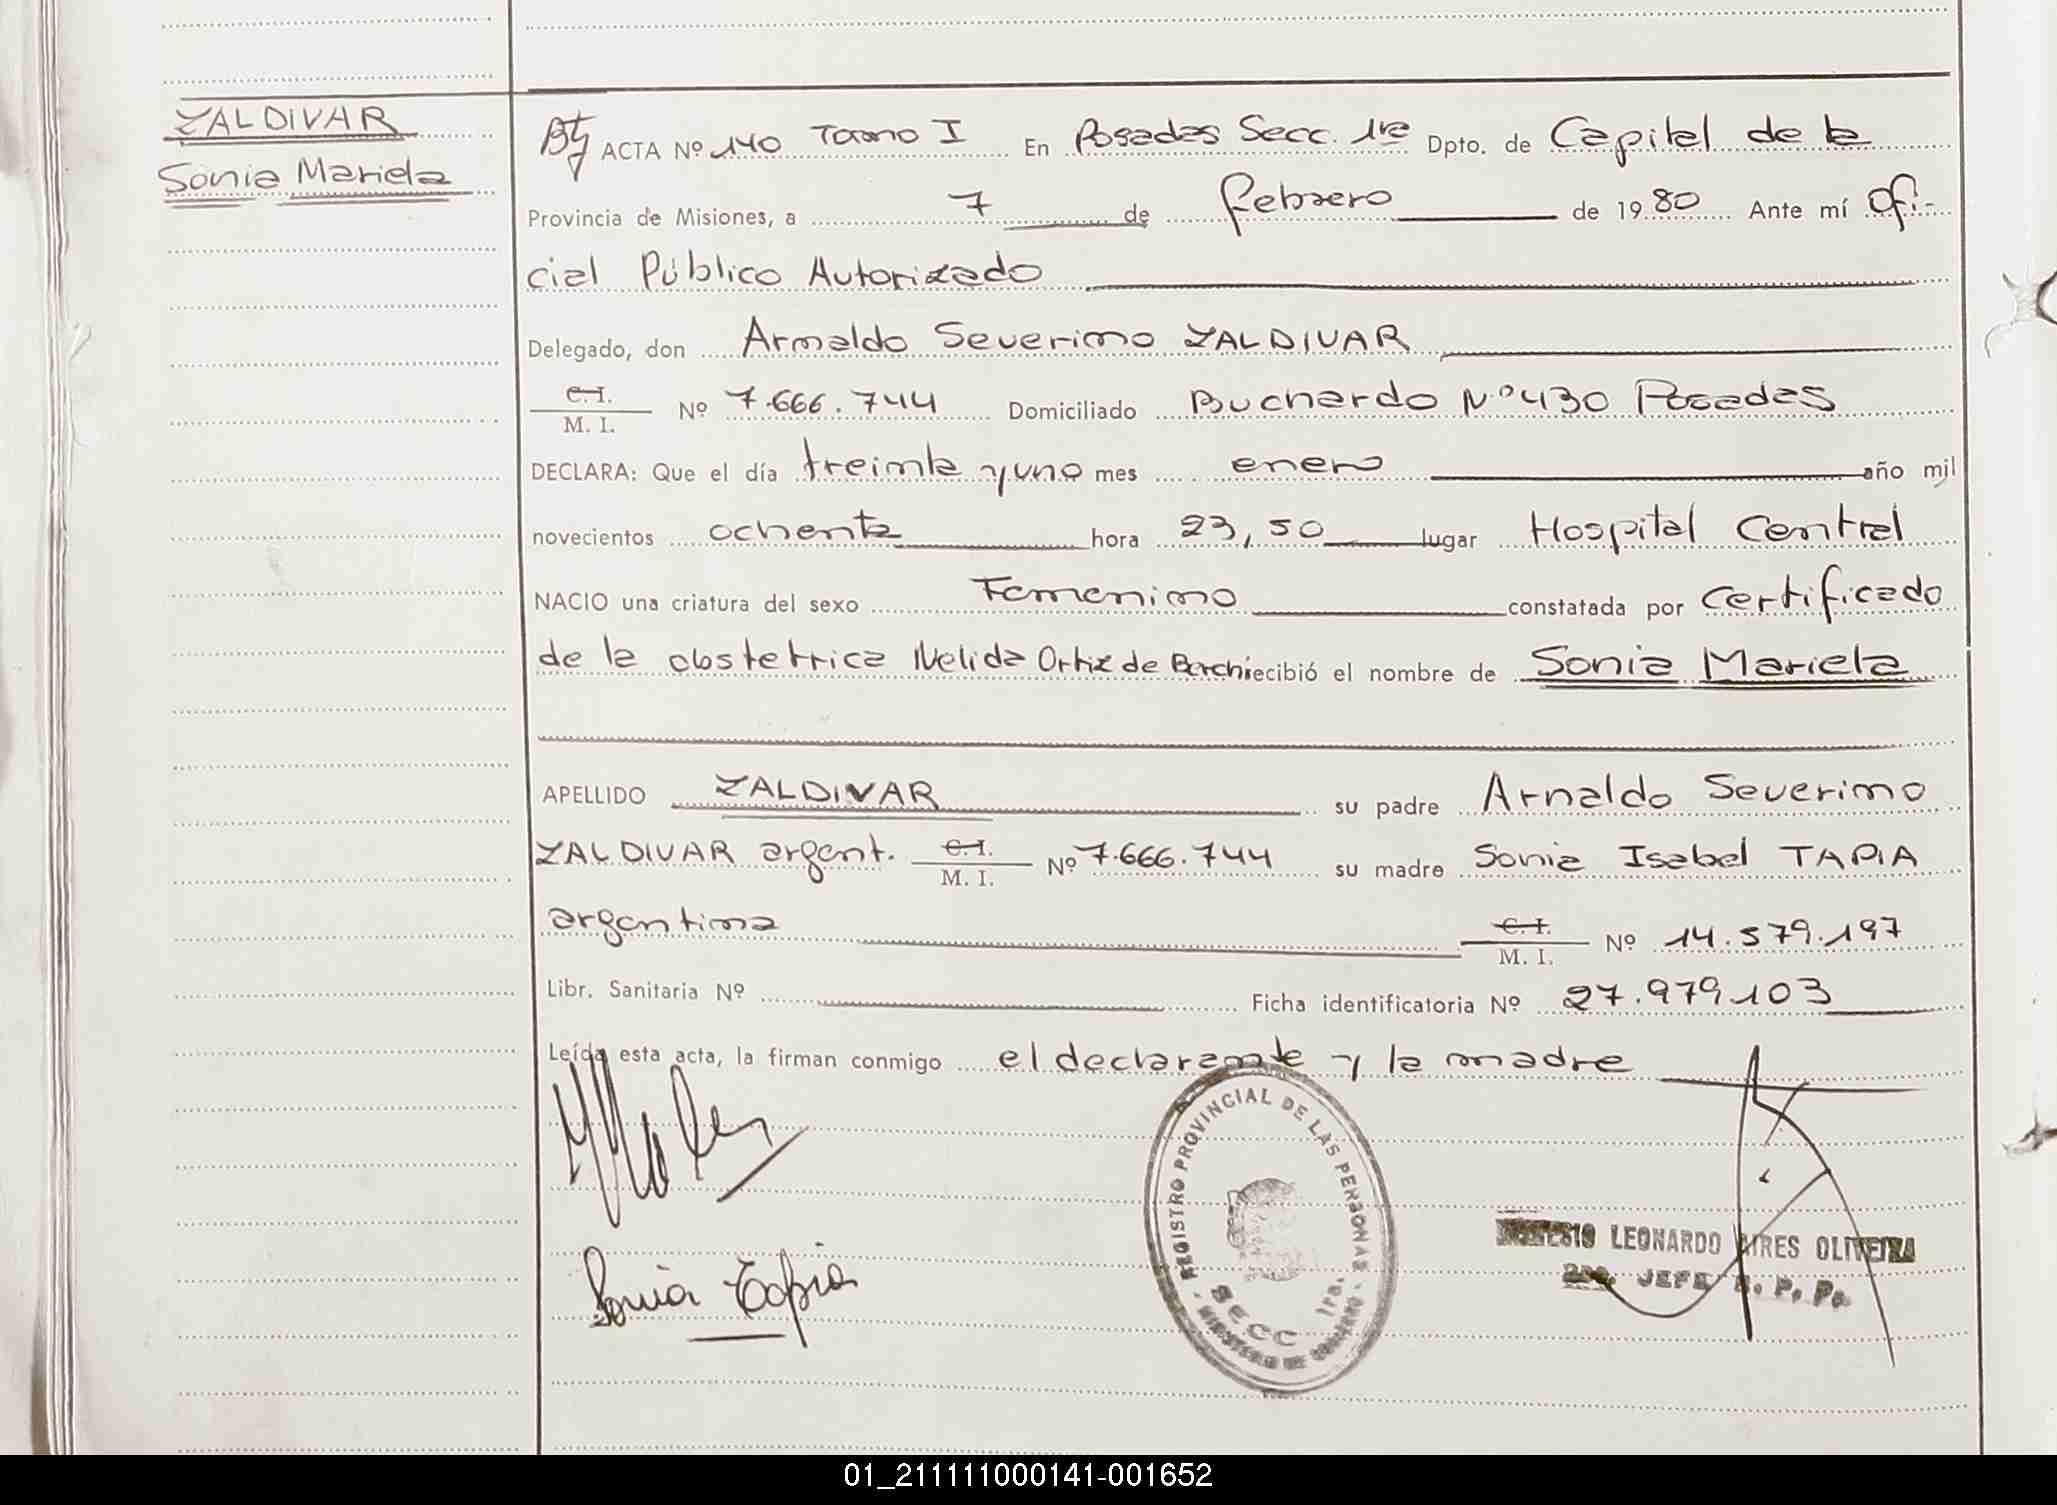 ZALDIVAR
Sonia Mariela
ACTA Nº 140 Tomo I En Posadas Secc. 1ra Dpto. de Capital de la
Provincia de Misiones, a 7 de febrero de 1980 Ante mí Ofi-
cial Público Autorizado
Delegado, don Arnaldo Severino ZALDIVAR
C.I. M. I. Nº 7.666.744 Domiciliado Buchardo Nº 430 Posadas
DECLARA: Que el día treinta y uno mes enero año mil
novecientos ochenta hora 23,50 lugar Hospital Central
NACIO una criatura del sexo Femenino constatada por certificado
de la obstetrica Nelida Ortiz de Berchi recibió el nombre de Sonia Mariela
APELLIDO ZALDIVAR su padre Arnaldo Severino
ZALDIVAR argent. C.I. M. I. Nº 7.666.744 su madre Sonia Isabel TAPIA
argentina C.I. M. I. Nº 14.579.197
Libr. Sanitaria Nº Ficha identificatoria Nº 27.979.103
Leída esta acta, la firman conmigo el declarante y la madre
REGISTRO PROVINCIAL DE LAS PERSONAS
SECC 1ra.
MINISTERIO DE GOBIERNO
LEONARDO AIRES OLIVEIRA
JEFE R. P. P.
Sonia Tapia
01_211111000141-001652